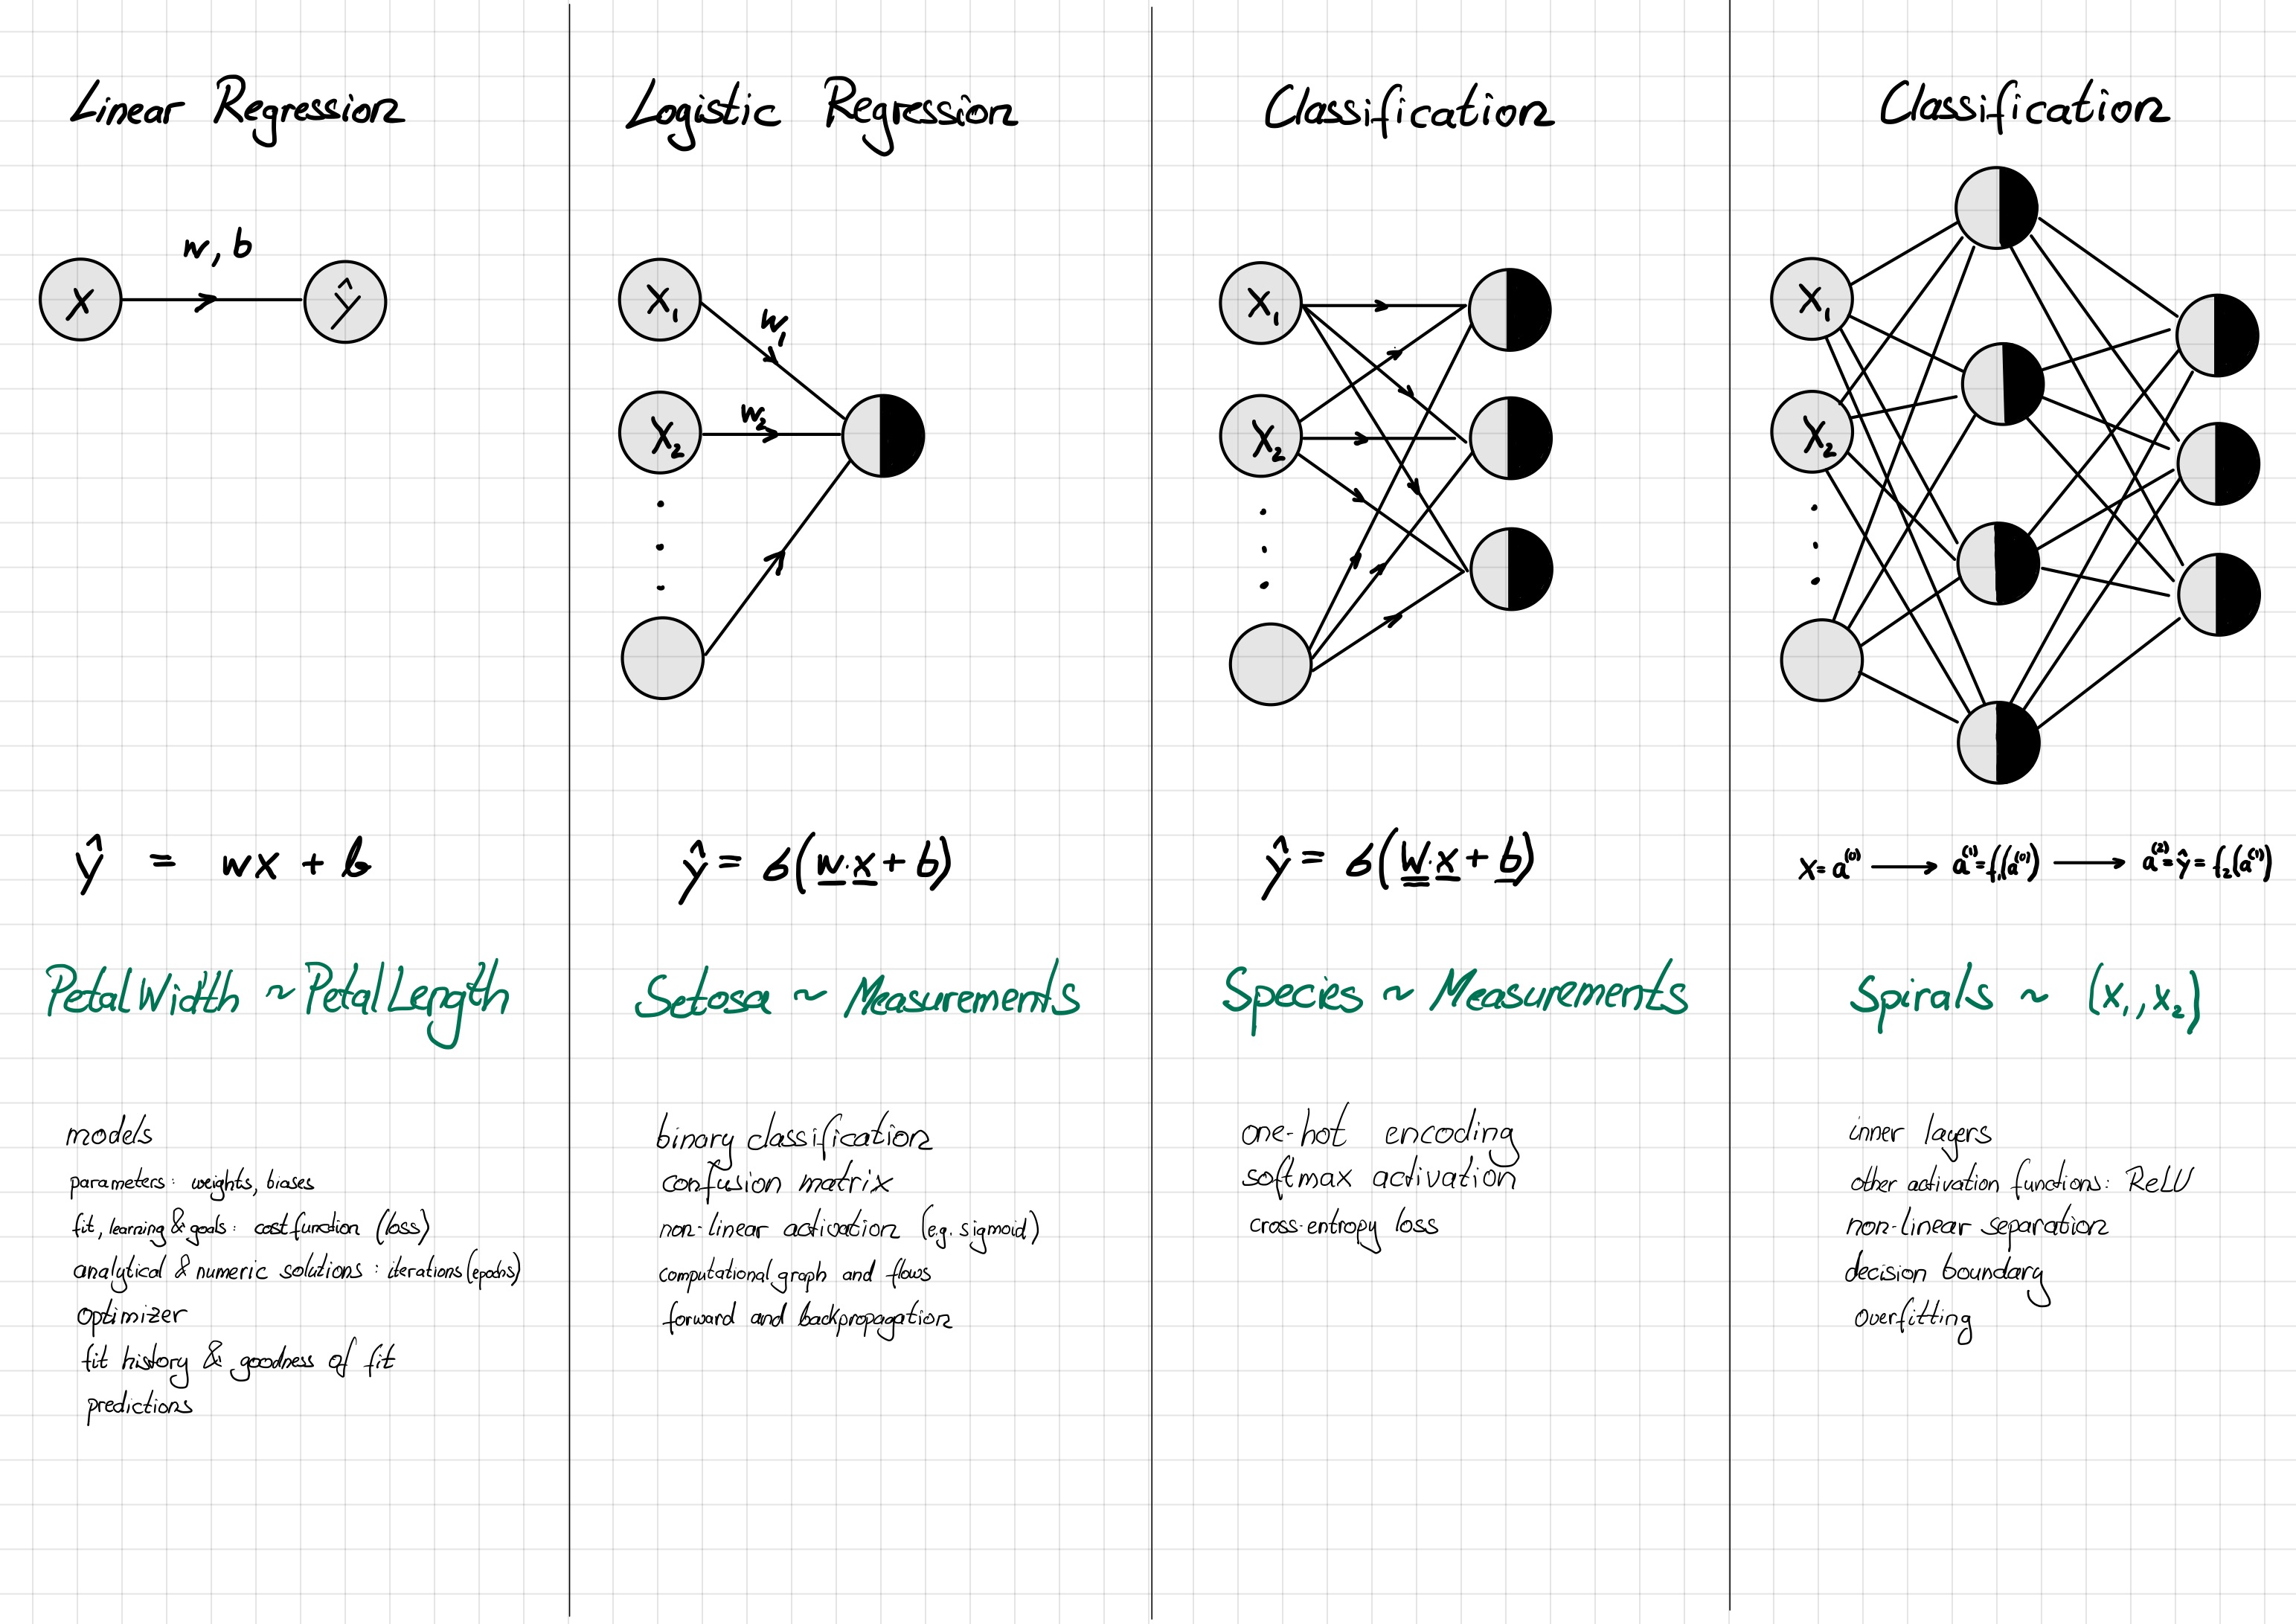 Linear Regression
w, b
x
ŷ
ŷ = wx + b
PetalWidth ~ PetalLength
models
parameters: weights, biases
fit, learning & goals: costfunction (loss)
analytical & numeric solutions: iterations (epochs)
optimizer
fit history & goodness of fit
predictions
Logistic Regression
x₁
w₁
x₂
w₂
ŷ = σ(w·x + b)
Setosa ~ Measurements
binary classification
confusion matrix
non-linear activation (e.g. sigmoid)
computational graph and flows
forward and backpropagation
Classification
x₁
x₂
ŷ = σ(W·x + b)
Species ~ Measurements
one-hot encoding
softmax activation
cross-entropy loss
Classification
x₁
x₂
x = a⁽⁰⁾ → a⁽¹⁾ = f₁(a⁽⁰⁾) → a⁽²⁾ = ŷ = f₂(a⁽¹⁾)
Spirals ~ (x₁, x₂)
inner layers
other activation functions: ReLU
non-linear separation
decision boundary
overfitting